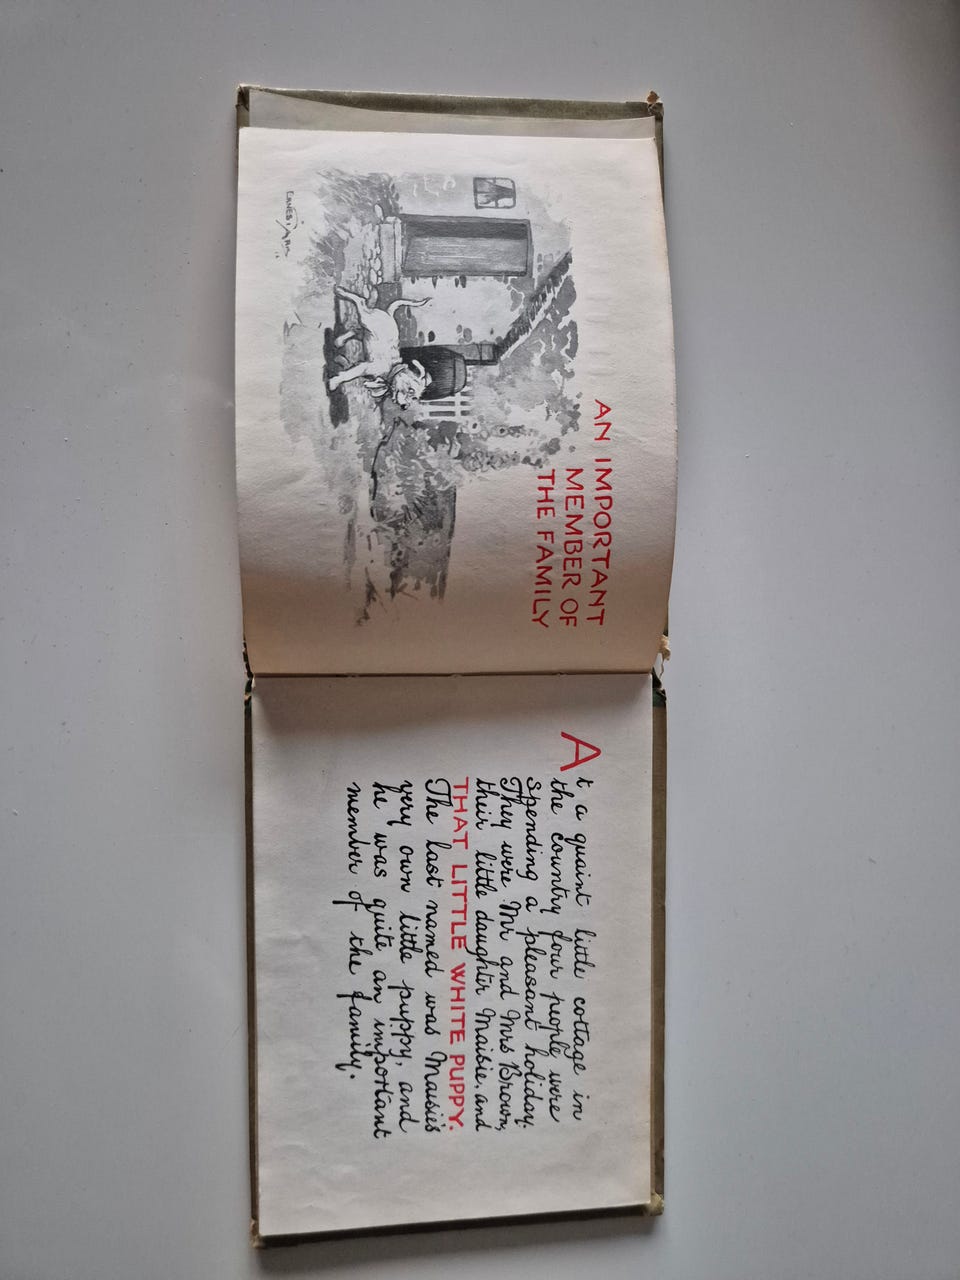 AN IMPORTANT
MEMBER OF
THE FAMILY
ERNEST
At a quaint little cottage in
the country four people were
spending a pleasant holiday.
They were Mr and Mrs Brown,
their little daughter Maisie, and
THAT LITTLE WHITE PUPPY.
The last named was Maisie's
very own little puppy, and
he was quite an important
member of the family.